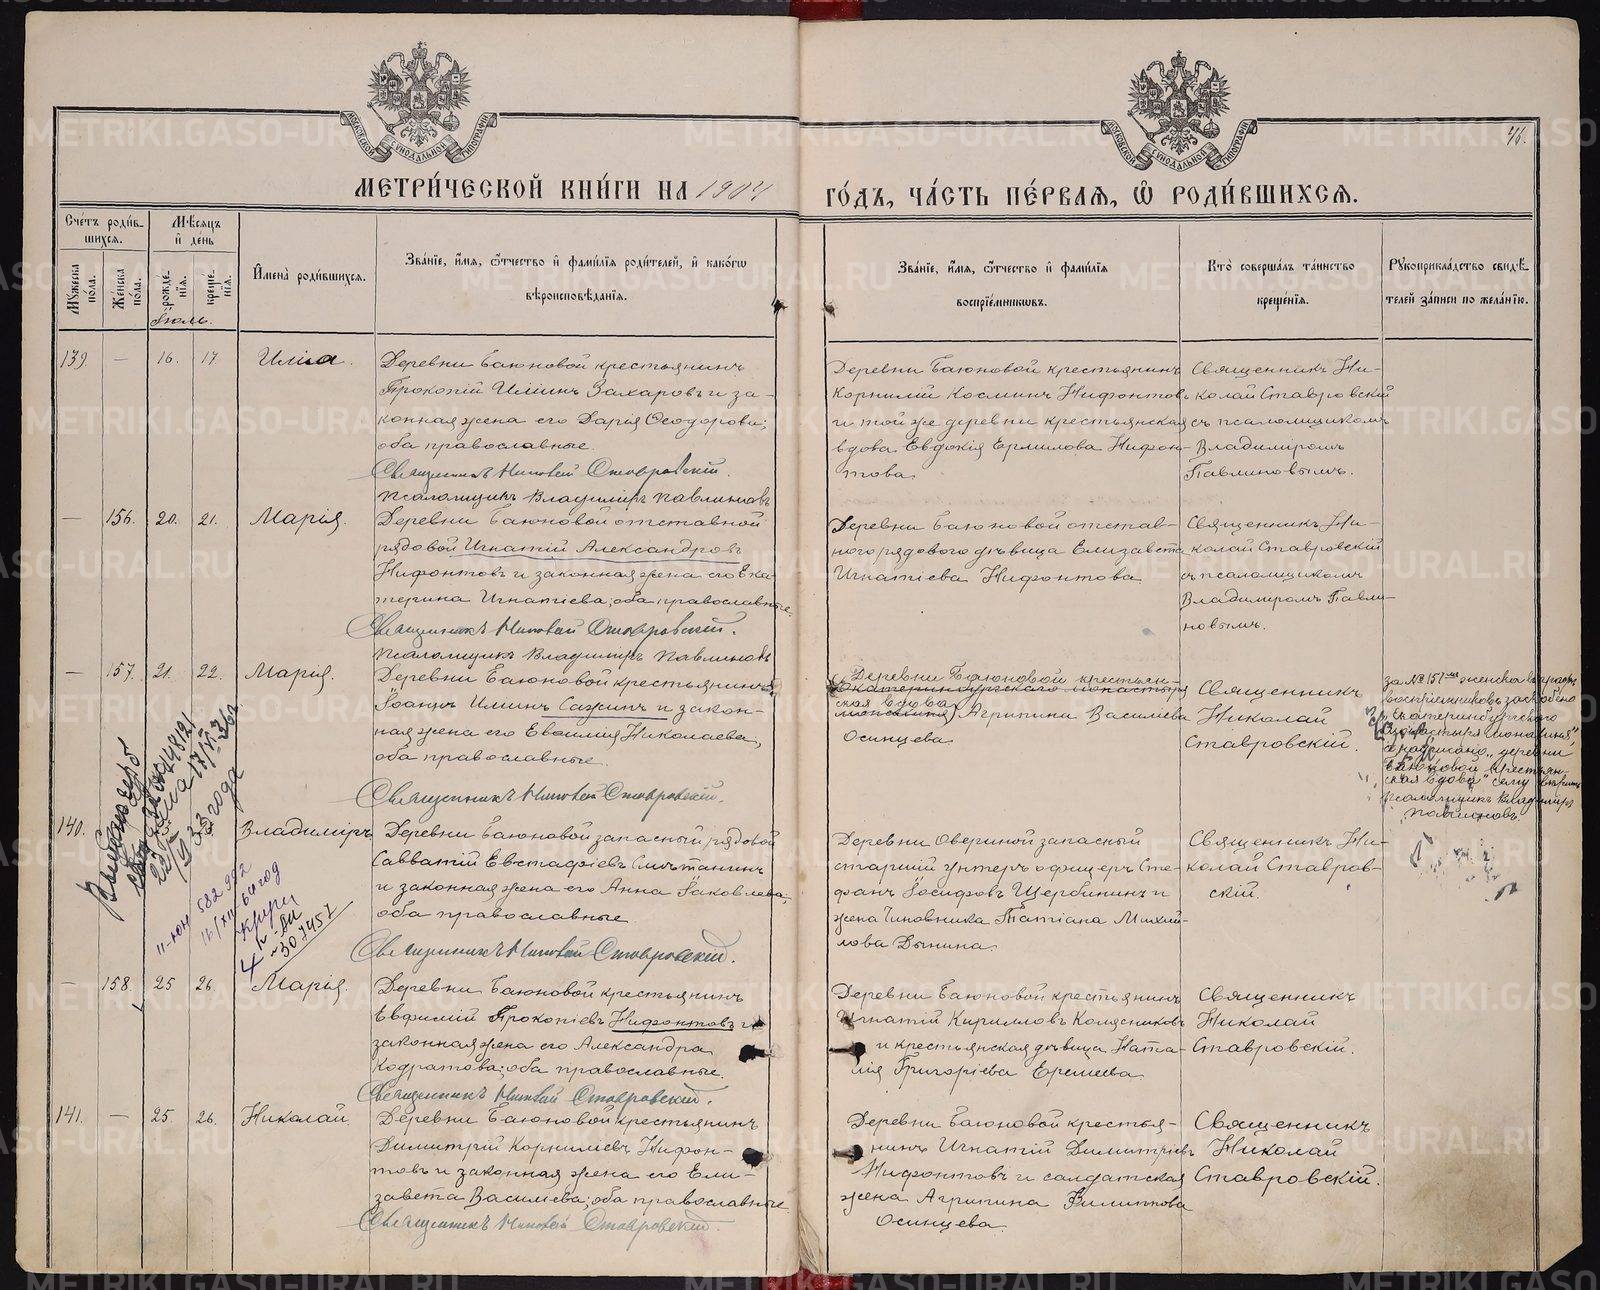 МОСКОВСКОЙ СИНОДАЛЬНОЙ ТИПОГРАФІИ
МОСКОВСКОЙ СИНОДАЛЬНОЙ ТИПОГРАФІИ
МЕТРИ́ЧЕСКОЙ КНИ́ГИ НА 1904
ГО́ДЪ, ЧА́СТЬ ПЕ́РВАЯ, Ѡ РОДИ́ВШИХСЯ.
Сче́тъ роди́в-
шихся.
Мѣ́сяцъ
и де́нь
Му́жеска по́ла.
Же́нска по́ла.
рожде́-нія.
креще́-нія.
Имена̀ роди́вшихся.
Зва́ніе, и́мя, о́тчество и фами́лія роди́телей, и како́гѡ
вѣроисповѣ́данія.
Зва́ніе, и́мя, о́тчество и фами́лія
воспріе́мниковъ.
Кто̀ соверша́лъ та́инство
креще́нія.
Рукоприкла́дство свидѣ́-
телей за́писи по жела́нію.
Іюль.
139. — 16. 17. Илія.
Деревни Баюновой крестьянинъ
Прокопій Илiинъ Захаровъ и за-
конная жена его Дарія Ѳеодорова;
оба православные.
Священникъ Николай Ставровскій.
Псаломщикъ Владиміръ Павлиновъ
Деревни Баюновой крестьянинъ
Корнилій Косминъ Нифонтовъ
и той же деревни крестьянская
вдова Евдокія Ермилова Нифон-
това.
Священникъ Ни-
колай Ставровскій
съ псаломщикомъ
Владиміромъ
Павлиновымъ.
— 156. 20. 21. Марія.
Деревни Баюновой отставной
рядовой Игнатій Александровъ
Нифонтовъ и законная жена его Ека-
терина Игнатіева; оба православные.
Священникъ Николай Ставровскій.
Псаломщикъ Владиміръ Павлиновъ
Деревни Баюновой отстав-
ного рядового дѣвица Елизавета
Игнатіева Нифонтова
Священникъ Ни-
колай Ставровскій
съ псаломщикомъ
Владиміромъ Павли-
новымъ.
— 157. 21. 22. Марія.
Деревни Баюновой крестьянинъ
Іоаннъ Илiинъ Сажинъ и закон-
ная жена его Евѳимія Николаева,
оба православные.
Священникъ Николай Ставровскій.
Деревни Баюновой крестьян-
Екатеринбургскаго монастыря
ская вдова
Агрипина Василіева
Осинцева
Священникъ
Николай
Ставровскій.
за № 157 женска въ графѣ
воспріемниковъ зачеркнуто
Екатеринбургскаго
монастыря
надписано „деревни
Баюновой крестьян-
ская вдова"
Псаломщикъ Владиміръ
Павлиновъ.
140. Владиміръ
Деревни Баюновой запасный рядовой
Савватій Евстафіевъ Сметанинъ
и законная жена его Анна Іаковлева;
оба православные.
Священникъ Николай Ставровскій.
Деревни Овериной запасный
старшій унтеръ офицеръ Сте-
фанъ Іосифовъ Щербининъ и
жена чиновника Татіана Михай-
лова Дынина.
Священникъ Ни-
колай Ставров-
скій.
— 158. 25 26. Марія.
Деревни Баюновой крестьянинъ
Евфимій Прокопіевъ Нифонтовъ и
законная жена его Александра
Кодратова; оба православные.
Священникъ Николай Ставровскій.
Деревни Баюновой крестьянинъ
Игнатій Кирилловъ Колясниковъ
и крестьянская дѣвица Ната-
лія Григоріева Еремеева
Священникъ
Николай
Ставровскій.
141. — 25. 26. Николай
Деревни Баюновой крестьянинъ
Димитрій Корниліевъ Нифон-
товъ и законная жена его Ели-
завета Василіева; оба православные.
Священникъ Николай Ставровскій.
Деревни Баюновой крестья-
нинъ Игнатій Димитріевъ
Нифонтовъ и солдатская
жена Агрипина Филиппова
Осинцева.
Священникъ
Николай
Ставровскій.
METRIKI.GASO-URAL.RU